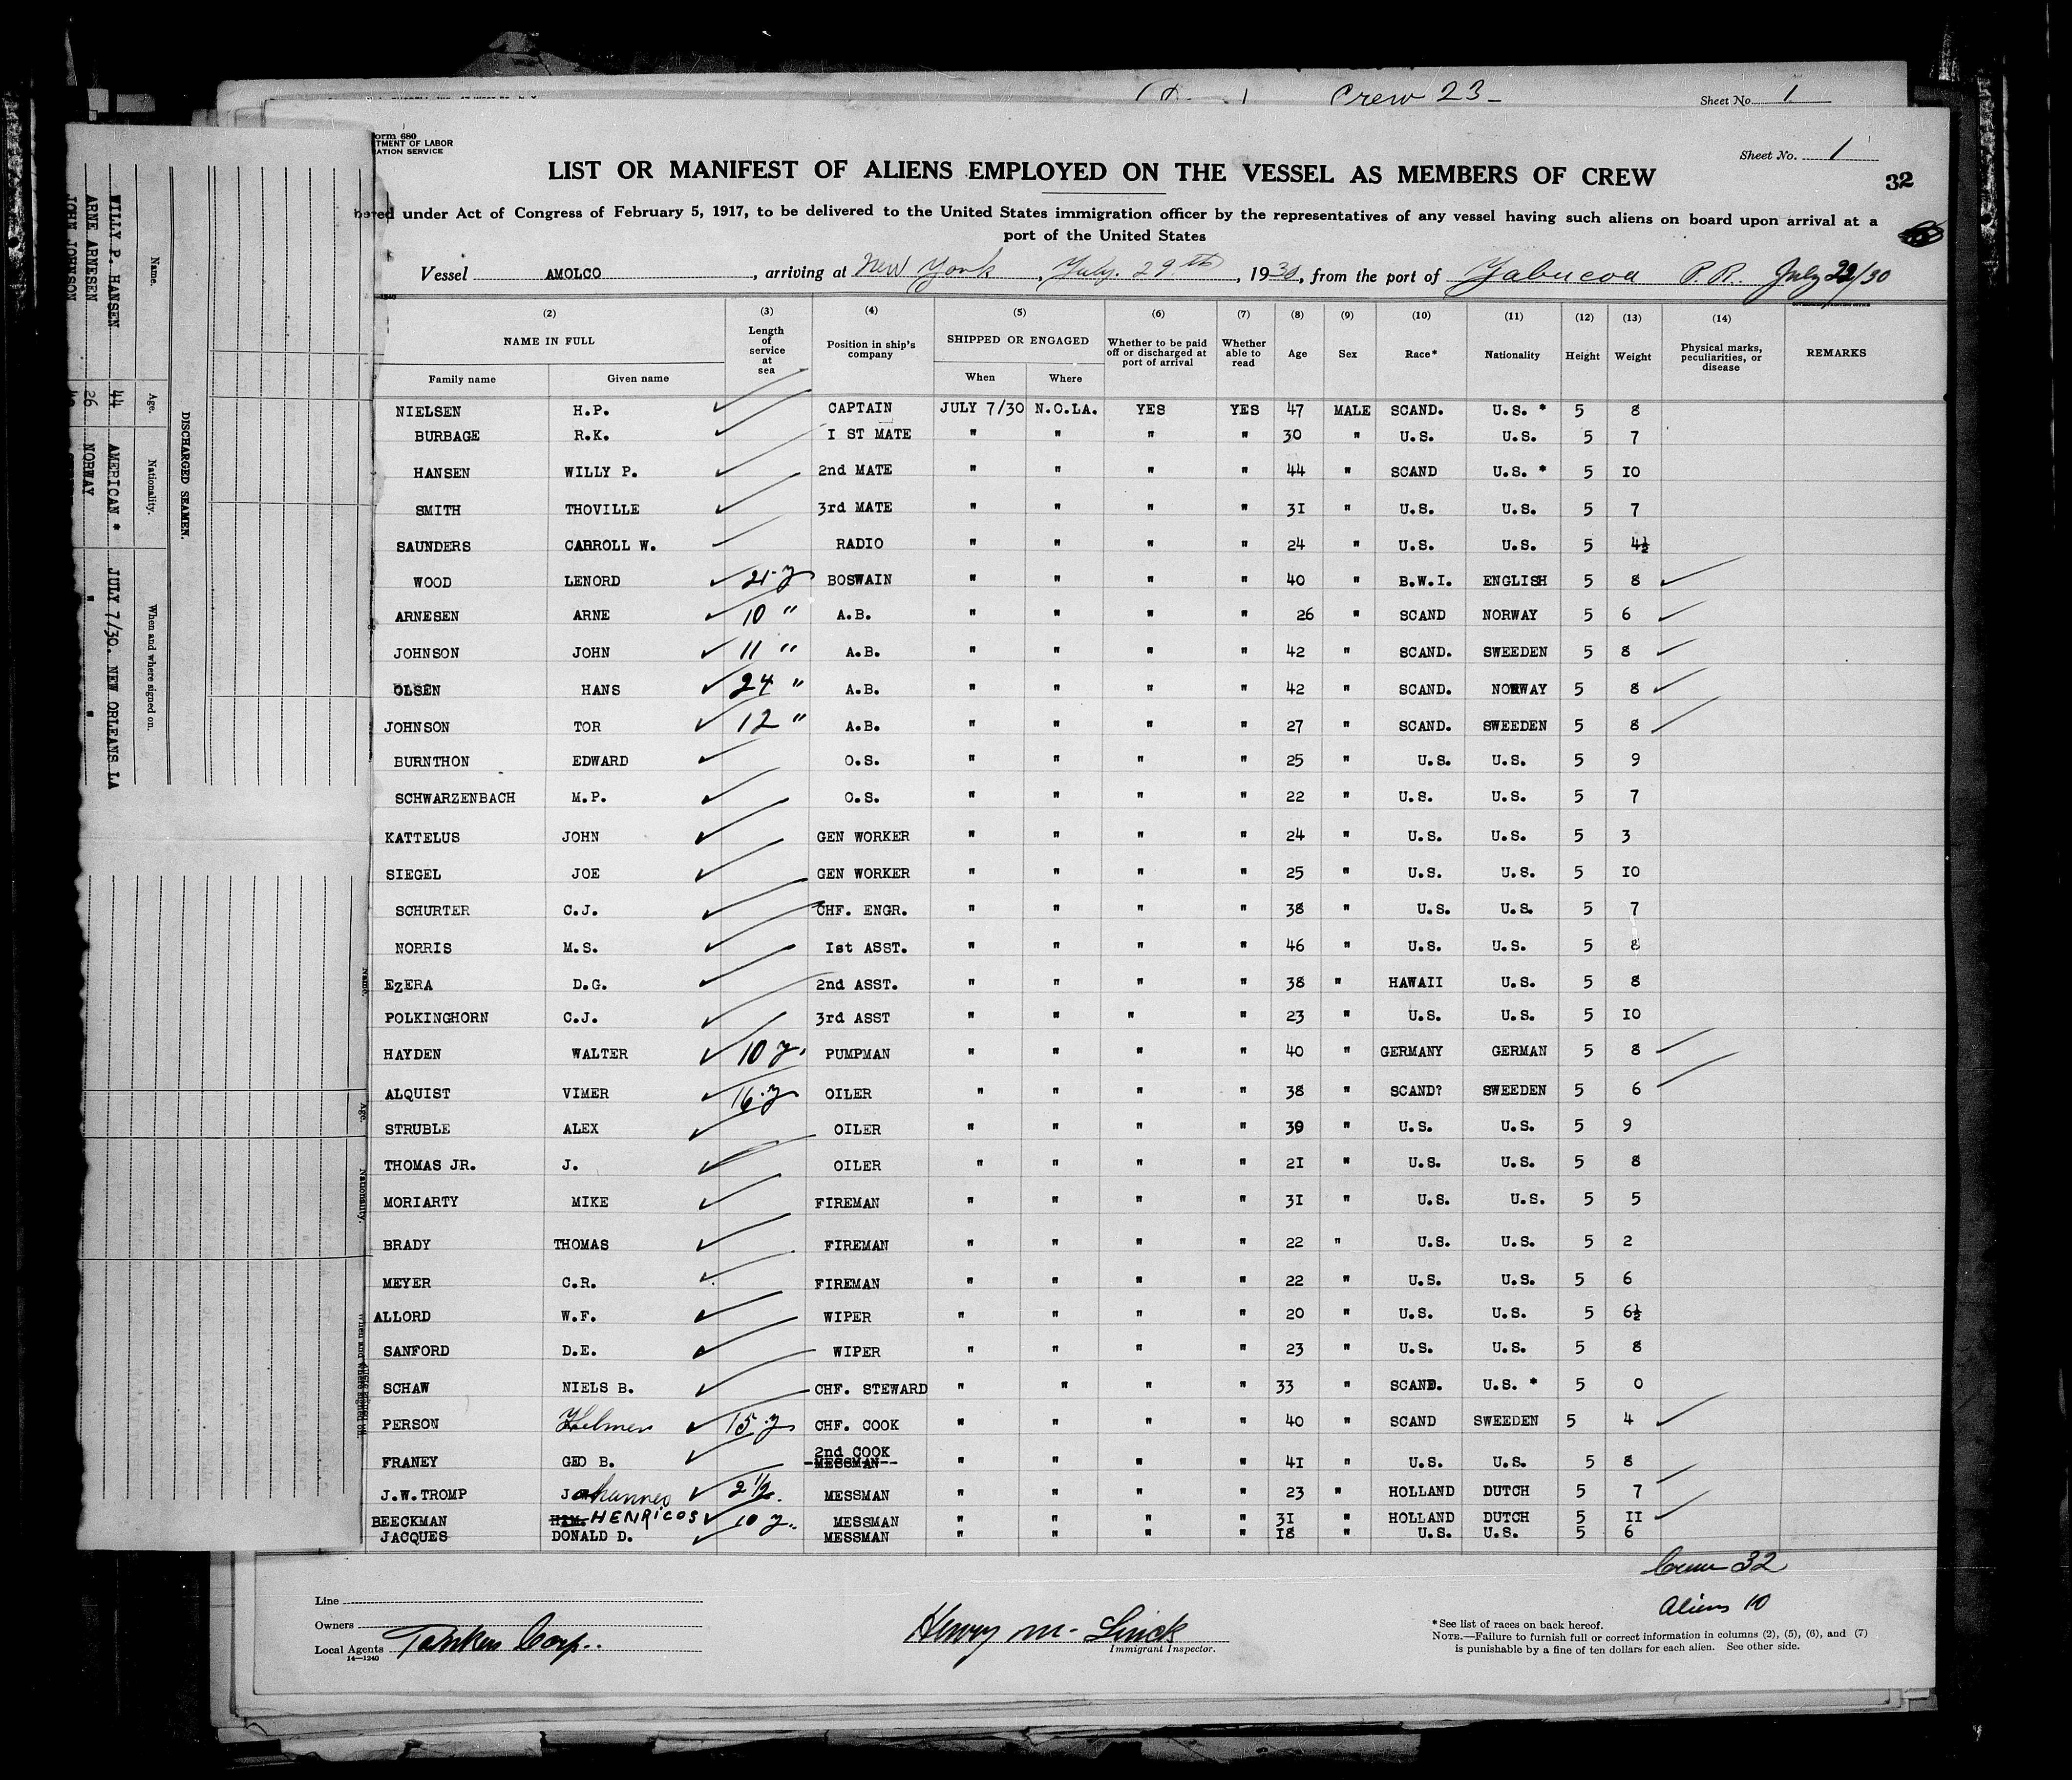 Crew 23-
Sheet No. 1
orm 680
TMENT OF LABOR
ATION SERVICE
Sheet No. 1
LIST OR MANIFEST OF ALIENS EMPLOYED ON THE VESSEL AS MEMBERS OF CREW
32
ered under Act of Congress of February 5, 1917, to be delivered to the United States immigration officer by the representatives of any vessel having such aliens on board upon arrival at a
port of the United States
Vessel AMOLCO, arriving at New York, July. 29th, 1930, from the port of Yabucoa P.R. July 22/30
(2) (3) (4) (5) (6) (7) (8) (9) (10) (11) (12) (13) (14)
NAME IN FULL Length of service at sea Position in ship's company SHIPPED OR ENGAGED Whether to be paid off or discharged at port of arrival Whether able to read Age Sex Race* Nationality Height Weight Physical marks, peculiarities, or disease REMARKS
Family name Given name When Where
NIELSEN H.P. CAPTAIN JULY 7/30 N.O.LA. YES YES 47 MALE SCAND. U.S. * 5 8
BURBAGE R.K. I ST MATE " " " " 30 " U.S. U.S. 5 7
HANSEN WILLY P. 2nd MATE " " " " 44 " SCAND U.S. * 5 10
SMITH THOVILLE 3rd MATE " " " " 31 " U.S. U.S. 5 7
SAUNDERS CARROLL W. RADIO " " " " 24 " U.S. U.S. 5 4½
WOOD LENORD 21-y BOSWAIN " " " " 40 " B.W.I. ENGLISH 5 8
ARNESEN ARNE 10 " A.B. " " " " 26 " SCAND NORWAY 5 6
JOHNSON JOHN 11 " A.B. " " " " 42 " SCAND. SWEEDEN 5 8
OLSEN HANS 24 " A.B. " " " " 42 " SCAND. NORWAY 5 8
JOHNSON TOR 12 " A.B. " " " " 27 " SCAND. SWEEDEN 5 8
BURNTHON EDWARD O.S. " " " " 25 " U.S. U.S. 5 9
SCHWARZENBACH M.P. O.S. " " " " 22 " U.S. U.S. 5 7
KATTELUS JOHN GEN WORKER " " " " 24 " U.S. U.S. 5 3
SIEGEL JOE GEN WORKER " " " " 25 " U.S. U.S. 5 10
SCHURTER C.J. CHF. ENGR. " " " " 38 " U.S. U.S. 5 7
NORRIS M.S. 1st ASST. " " " " 46 " U.S. U.S. 5 8
EZERA D.G. 2nd ASST. " " " " 38 " HAWAII U.S. 5 8
POLKINGHORN C.J. 3rd ASST " " " " 23 " U.S. U.S. 5 10
HAYDEN WALTER 10 y. PUMPMAN " " " " 40 " GERMANY GERMAN 5 8
ALQUIST VIMER 16.y OILER " " " " 38 " SCAND? SWEEDEN 5 6
STRUBLE ALEX OILER " " " " 39 " U.S. U.S. 5 9
THOMAS JR. J. OILER " " " " 21 " U.S. U.S. 5 8
MORIARTY MIKE FIREMAN " " " " 31 " U.S. U.S. 5 5
BRADY THOMAS FIREMAN " " " " 22 " U.S. U.S. 5 2
MEYER C.R. FIREMAN " " " " 22 " U.S. U.S. 5 6
ALLORD W.F. WIPER " " " " 20 " U.S. U.S. 5 6½
SANFORD D.E. WIPER " " " " 23 " U.S. U.S. 5 8
SCHAW NIELS B. CHF. STEWARD " " " " 33 " SCAND. U.S. * 5 0
PERSON Helmer 15.y CHF. COOK " " " " 40 " SCAND SWEEDEN 5 4
FRANEY GEO B. 2nd COOK MESSMAN " " " " 41 " U.S. U.S. 5 8
J.W.TROMP Johannes 2 1/2. MESSMAN " " " " 23 " HOLLAND DUTCH 5 7
BEECKMAN HENRICOS 10 y. MESSMAN " " " " 31 " HOLLAND DUTCH 5 11
JACQUES DONALD D. MESSMAN " " " " 18 " U.S. U.S. 5 6
Crew 32
Aliens 10
Line
Owners
Local Agents Tankers Corp.
14-1240
Henry M. Linck
Immigrant Inspector.
*See list of races on back hereof.
NOTE.—Failure to furnish full or correct information in columns (2), (5), (6), and (7)
is punishable by a fine of ten dollars for each alien. See other side.
DISCHARGED SEAMEN.
Name. Age. Nationality. When and where signed on.
WILLY P. HANSEN 44 AMERICAN * JULY 7/30. NEW ORLEANS LA
ARNE ARNESEN 26 NORWAY " "
JOHN JOHNSON
Name. Age. Nationality.